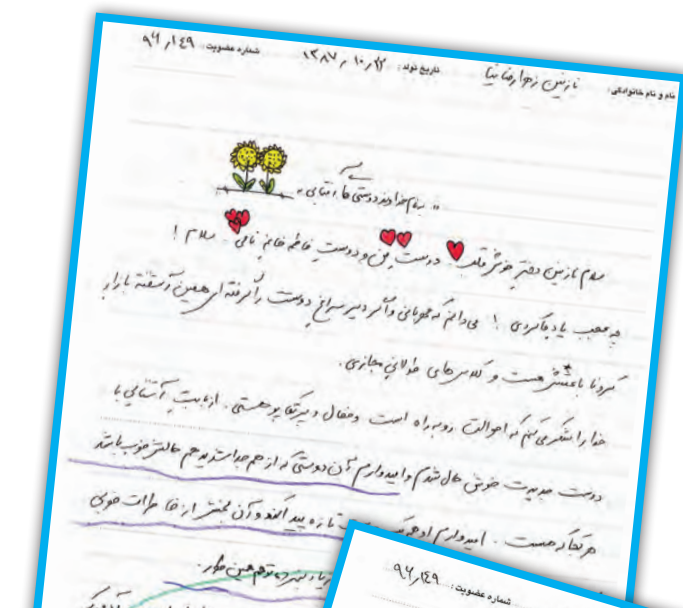 نام و نام خانوادگی: نازنین زهرا رضا نیا تاریخ تولد: ۱۳۸۷٫۱۰٫۲۲ شماره عضویت: ۹۶٫۱۴۹
« به نام خداوند دوستی ها و آشنایی »
سلام نازنین دختر خوش قلب دوست من و دوست فاطمه خانم نامی. سلام!
چه عجب یاد ما کردی! می دانم که مهربانی و اگر دیر سراغ دوست را گرفته ای همین آشفته بازار
کرونا باعثش هست و کلاس های طولانی مجازی.
خدا را شکر می کنم که احوالت روبه راه است و فعال و پرتکاپو هستی. از بابت آشنایی با
دوست جدیدت خوش حال شدم و امیدوارم آن دوستی که از هم جدا شدید هم حالش خوب باشد
هر کجا که هست. امیدوارم او هم تازه پیدا کند و آن بخش از خاطرات خوبی
زیاد نبرده تو هم همین طور.
شماره عضویت: ۹۶٫۱۴۹